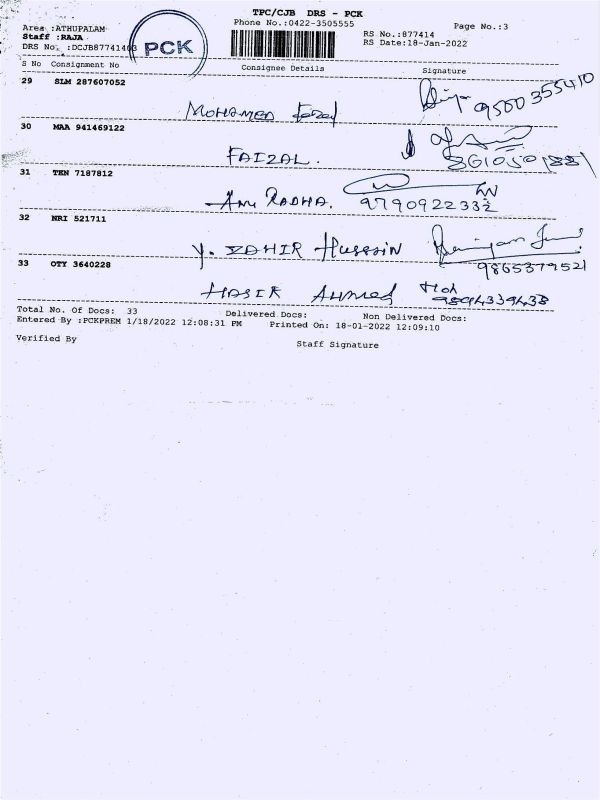 TPC/CJB DRS - PCK
Area :ATHUPALAM
Phone No.:0422-3505555
Page No.:3
Staff :RAJA
RS No.:877414
DRS No. :DCJB87741403
RS Date:18-Jan-2022
PCK
S No Consignment No Consignee Details Signature
29 SLM 287607052
MOHAMED 9500355410
30 MAA 941469122
FAIZAL.
31 TEN 7187812
Anu RADHA. 9790922332
32 NRI 521711
Y. ZAHIR Hussain
9865379521
33 OTY 3640228
Ahmed
Total No. Of Docs: 33 Delivered Docs: Non Delivered Docs:
Entered By :PCKPREM 1/18/2022 12:08:31 PM Printed On: 18-01-2022 12:09:10
Verified By Staff Signature